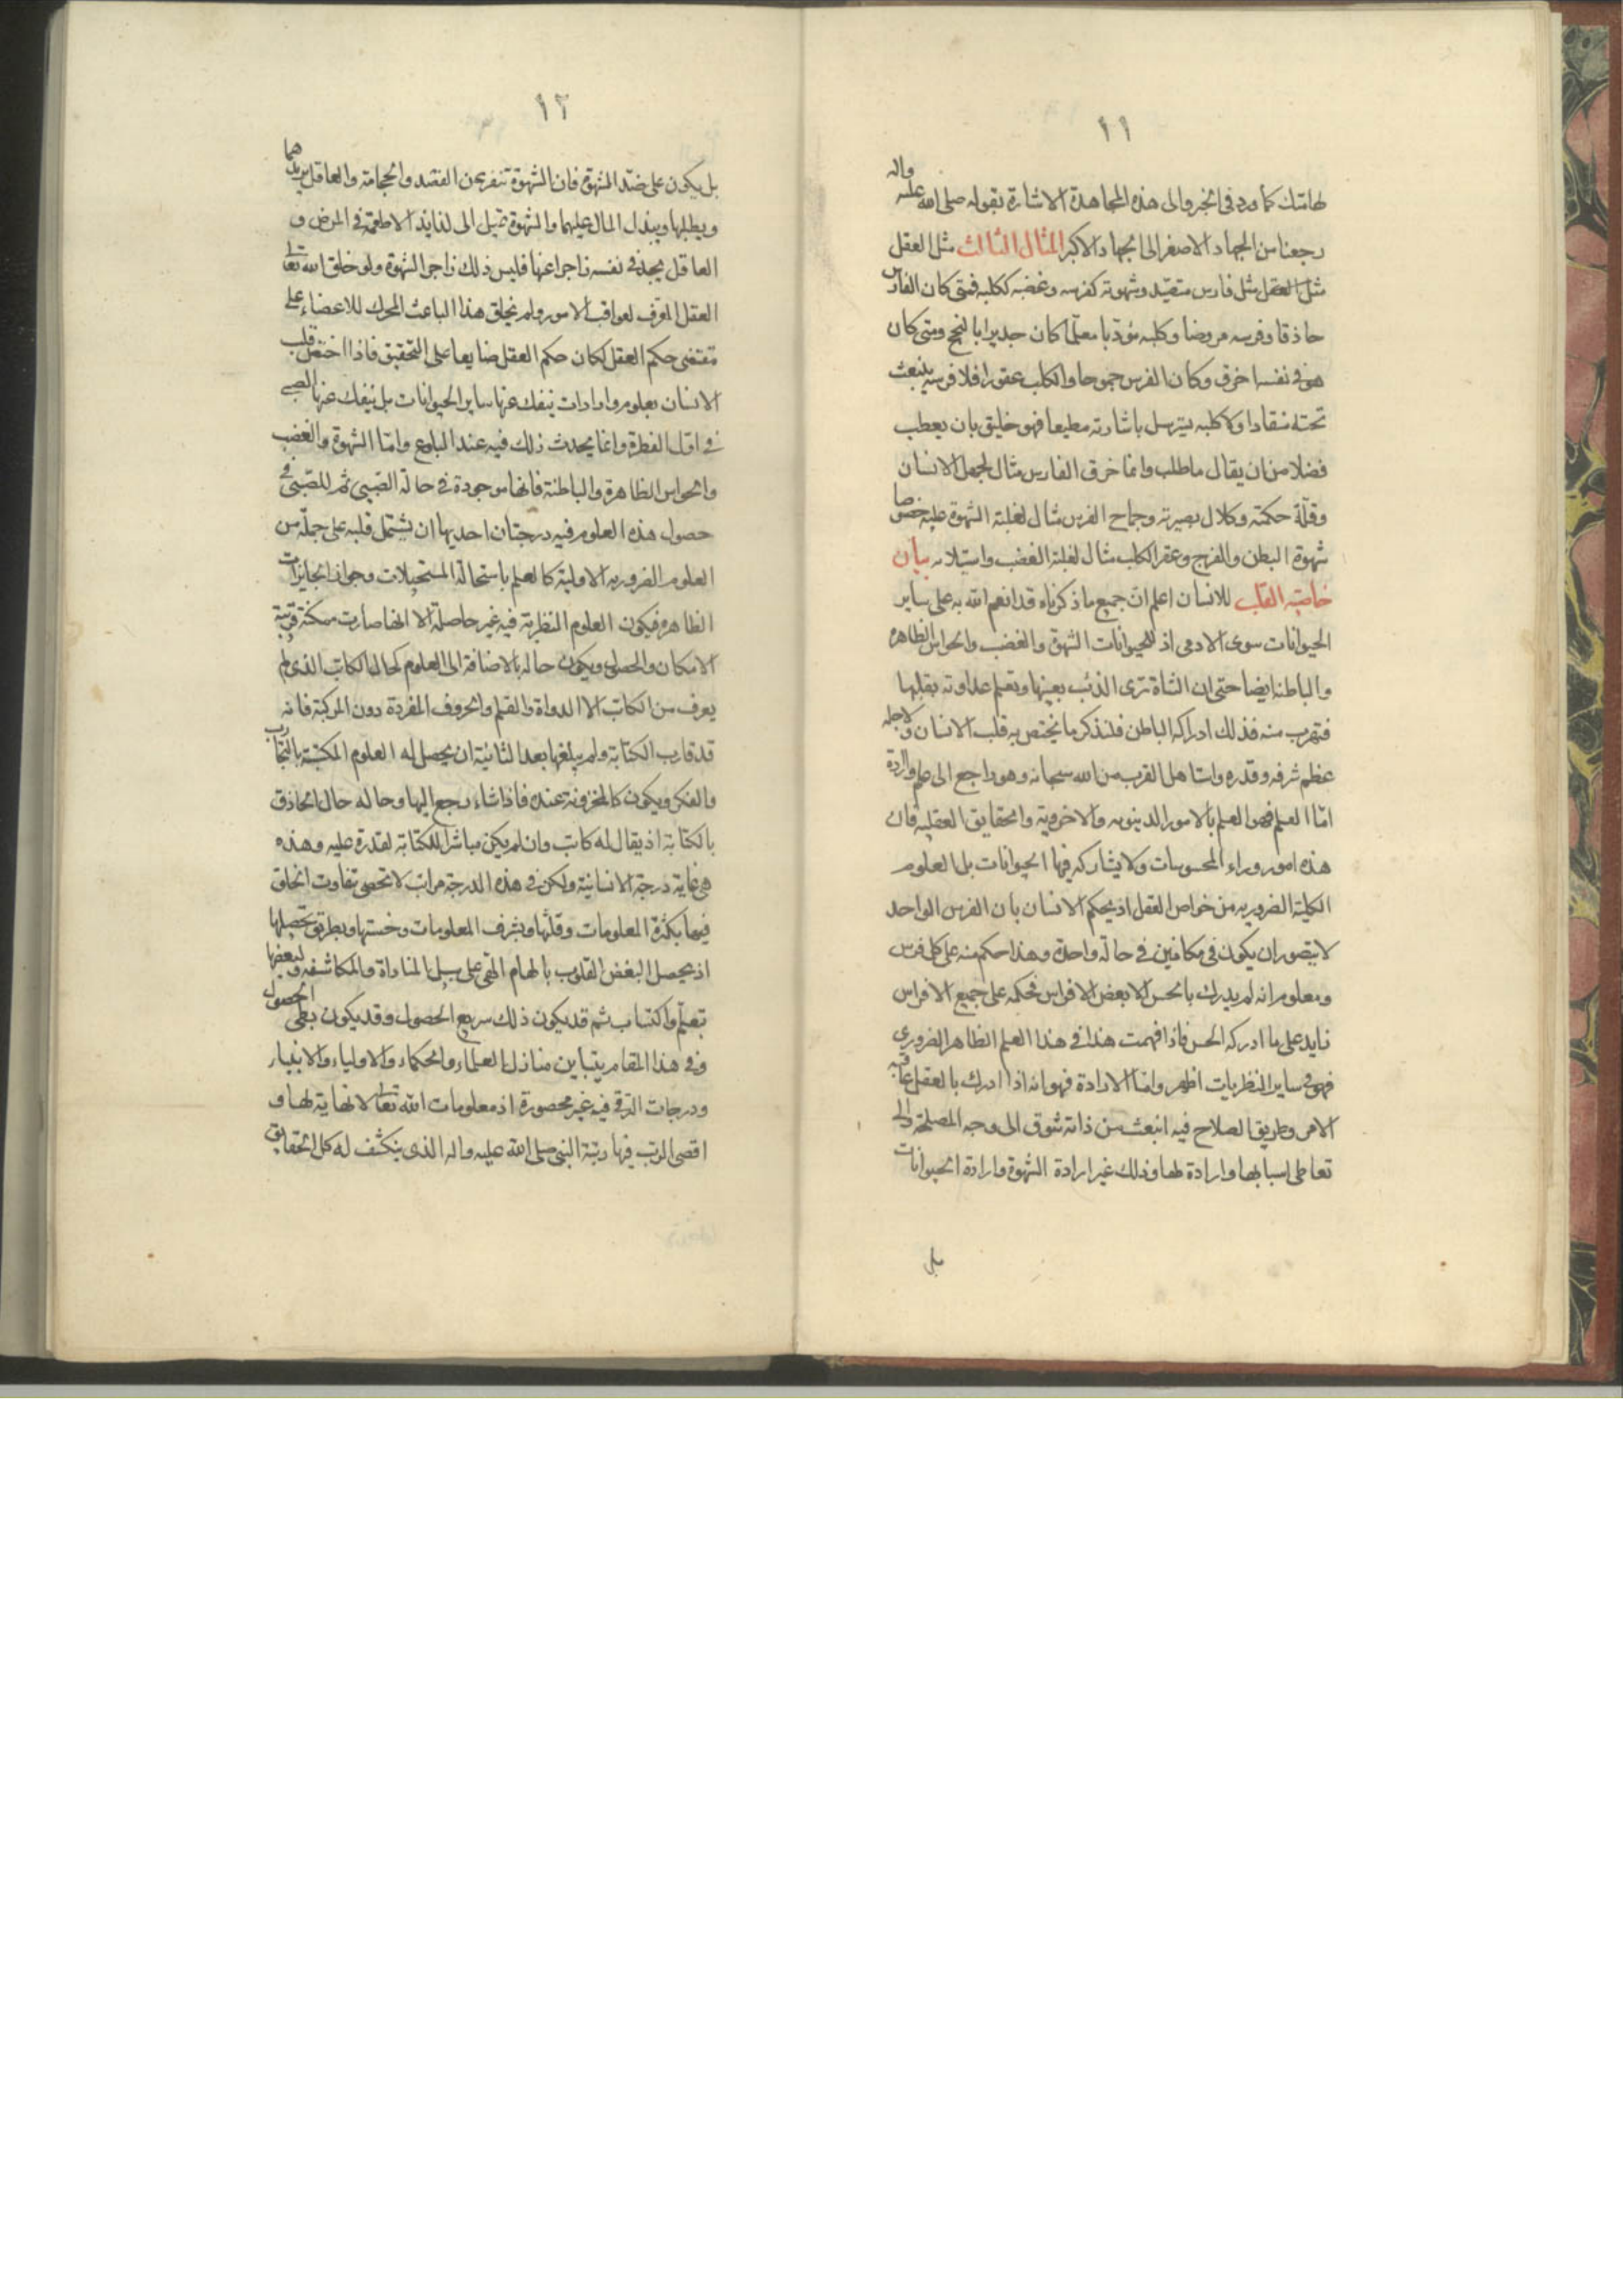 ١١
لها منك كما ورد فى الخبر والى هذه المجاهدة الاشارة بقوله صلى الله عليه واله
رجعنا من الجهاد الاصغر الى الجهاد الاكبر المثال الثالث مثل العقل
مثل العقل مثل فارس متصيّد وشهوته كفرسه وغضبه ككلبه فمتى كان الفارس
حاذقا وفرسه مروضا وكلبه مؤدّبا معلّما كان جديرا بالنجح ومتى كان
هو فى نفسه اخرق وكان الفرس جموحا والكلب عقورا فلا فرسه ينبعث
تحته منقادا ولا كلبه يسترسل باشارته مطيعا فهو خليق بان يعطب
فضلا من ان يقال ما طلب وانما خرق الفارس مثال لجهل الانسان
وقلّة حكمته وكلال بصيرته وجماح الفرس مثال لغلبة الشهوة عليه خصوصا
شهوة البطن والفرج وعقر الكلب مثال لغلبة الغضب واستيلائه بيان
خاصّية القلب للانسان اعلم انّ جميع ما ذكرناه قد انعم الله به على ساير
الحيوانات سوى الادمى اذ للحيوانات الشهوة والغضب والحواس الظاهره
والباطنه ايضا حتى ان الشاة ترى الذئب بعينها وتعلم عداوته بقلبها
فتهرب منه فذلك ادراكه الباطن فلنذكر ما يختص به قلب الانسان ولاجله
عظم شرفه وقدره واستاهل القرب من الله سبحانه وهو راجع الى علم وارادة
امّا العلم فهو العلم بالامور الدينويه والاخروية والحقايق العقليه فان
هذه امور وراء المحسوسات ولا يشاركه فيها الحيوانات بل العلوم
الكلية الضروريه من خواص العقل اذ يحكم الانسان بان الفرس الواحد
لا يتصور ان يكون فى مكانين فى حالة واحدة وهذا حكم منه على كل فرس
ومعلوم انه لم يدرك بالحس الا بعض الافراس فحكمه على جميع الافراس
زايد على ما ادركه الحس فاذا فهمت هذا فى هذا العلم الظاهر الضرورى
فهو فى ساير النظريات اظهر وامّا الارادة فهو انه اذا ادرك بالعقل عاقبة
الامر وطريق الصلاح فيه انبعث من ذاته شوق الى وجه المصلحة والى
تعاطى اسبابها وارادة لها وذلك غير ارادة الشهوة وارادة الحيوانات
بل
١٢
بل يكون على ضدّ الشهوة فان الشهوة تنفر عن الفصد والحجامة والعاقل يريدهما
ويطلبها ويبذل المال عليهما والشهوة تميل الى لذايذ الاطعمة فى المرض و
العاقل يجد فى نفسه زاجرا عنها فليس ذلك زاجر الشهوة ولو خلق الله تعالى
العقل المعرّف لعواقب الامور ولم يخلق هذا الباعث المحرك للاعضاء على
مقتضى حكم العقل لكان حكم العقل ضايعا على التحقيق فاذا اختصّ قلب
الانسان بعلوم وارادات ينفك عنها ساير الحيوانات بل ينفك عنها الصبى
فى اوّل الفطرة وانما يحدث ذلك فيه عند البلوغ وامّا الشهوة والغضب
والحواس الظاهرة والباطنة فانها موجودة فى حالة الصّبى ثم للصّبى فى
حصول هذه العلوم فيه درجتان احديها ان يشتمل قلبه على جملة من
العلوم الضروريه الاولية كالعلم باستحالة المستحيلات وجواز الجايزات
الظاهره فيكون العلوم النظرية فيه غير حاصلة الا انها صارت ممكنة قريبة
الامكان والحصول ويكون حاله بالاضافة الى العلوم كحال الكاتب الذى لم
يعرف من الكتابة الا الدواة والقلم والحروف المفردة دون المركبة فانه
قد قارب الكتابة ولم يبلغها بعد الثانية ان يحصل له العلوم المكتسبة بالتجارب
والفكر ويكون كالمخزونة عنده فاذا شاء رجع اليها وحاله حال الحاذق
بالكتابة اذ يقال له كاتب وان لم يكن مباشرا للكتابة لقدرة عليه وهذه
هى غاية درجة الانسانية ولكن فى هذه الدرجة مراتب لا تحصى تفاوت الخلق
فيها بكثرة المعلومات وقلتها وبشرف المعلومات وخستها وبطريق تحصيلها
اذ يحصل البعض القلوب بالهام الهى على سبيل المناداة والمكاشفه ولبعضها
بتعلّم واكتساب ثم قد يكون ذلك سريع الحصول وقد يكون بطى الحصول
وفى هذا المقام يتباين منازل العلماء والحكماء والاولياء والانبياء
ودرجات الترقى فيه غير محصورة اذ معلومات الله تعالى لا نهاية لها و
اقصى الرتب فيها رتبة النبى صلى الله عليه واله الذى ينكشف له كل الحقايق